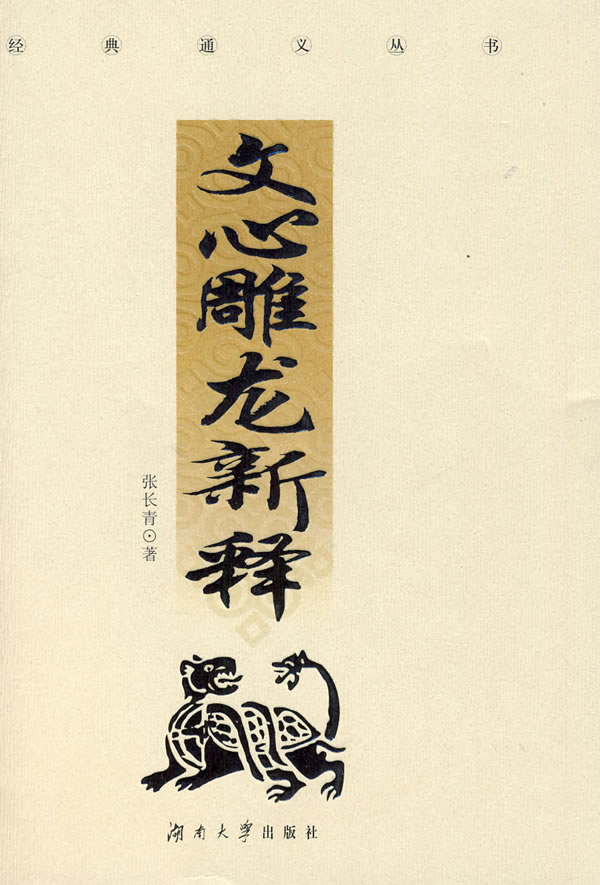 经典通义丛书
文心雕龙新释
张长青⊙著
湖南大学出版社